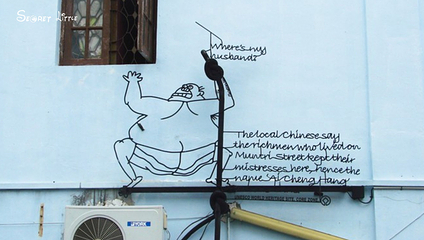 Secret Little
Where's my
husband?
The local Chinese say
the rich men who lived on
Muntri Street kept their
mistresses here, hence the
name 'Ai Cheng Hang'